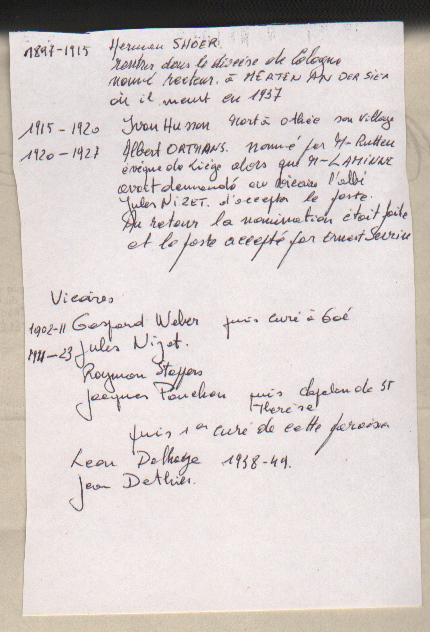 1897-1915 Herman SNOER.
rentré dans le diocèse de Cologne
nommé recteur à MERTEN AN DER SIEG
où il meurt en 1937
1915-1920 Yvan Husson Mort à Othée son village
1920-1927 Albert ORTMANS. nommé par Mr Rutten
évêque de Liège alors que Mr LAMINNE
avait demandé au vicaire l'abbé
Jules NIZET. d'accepter le poste.
Au retour la nomination était faite
et le poste accepté par Ernest
Vicaires
1902-11 Gaspard Weber puis curé à Goé
-23 Jules Nizet.
Raymon
Jacques puis chapelain de St
Thérèse
puis 1er curé de cette paroisse
Leon Delhage 1938-49.
Jean Dethier.